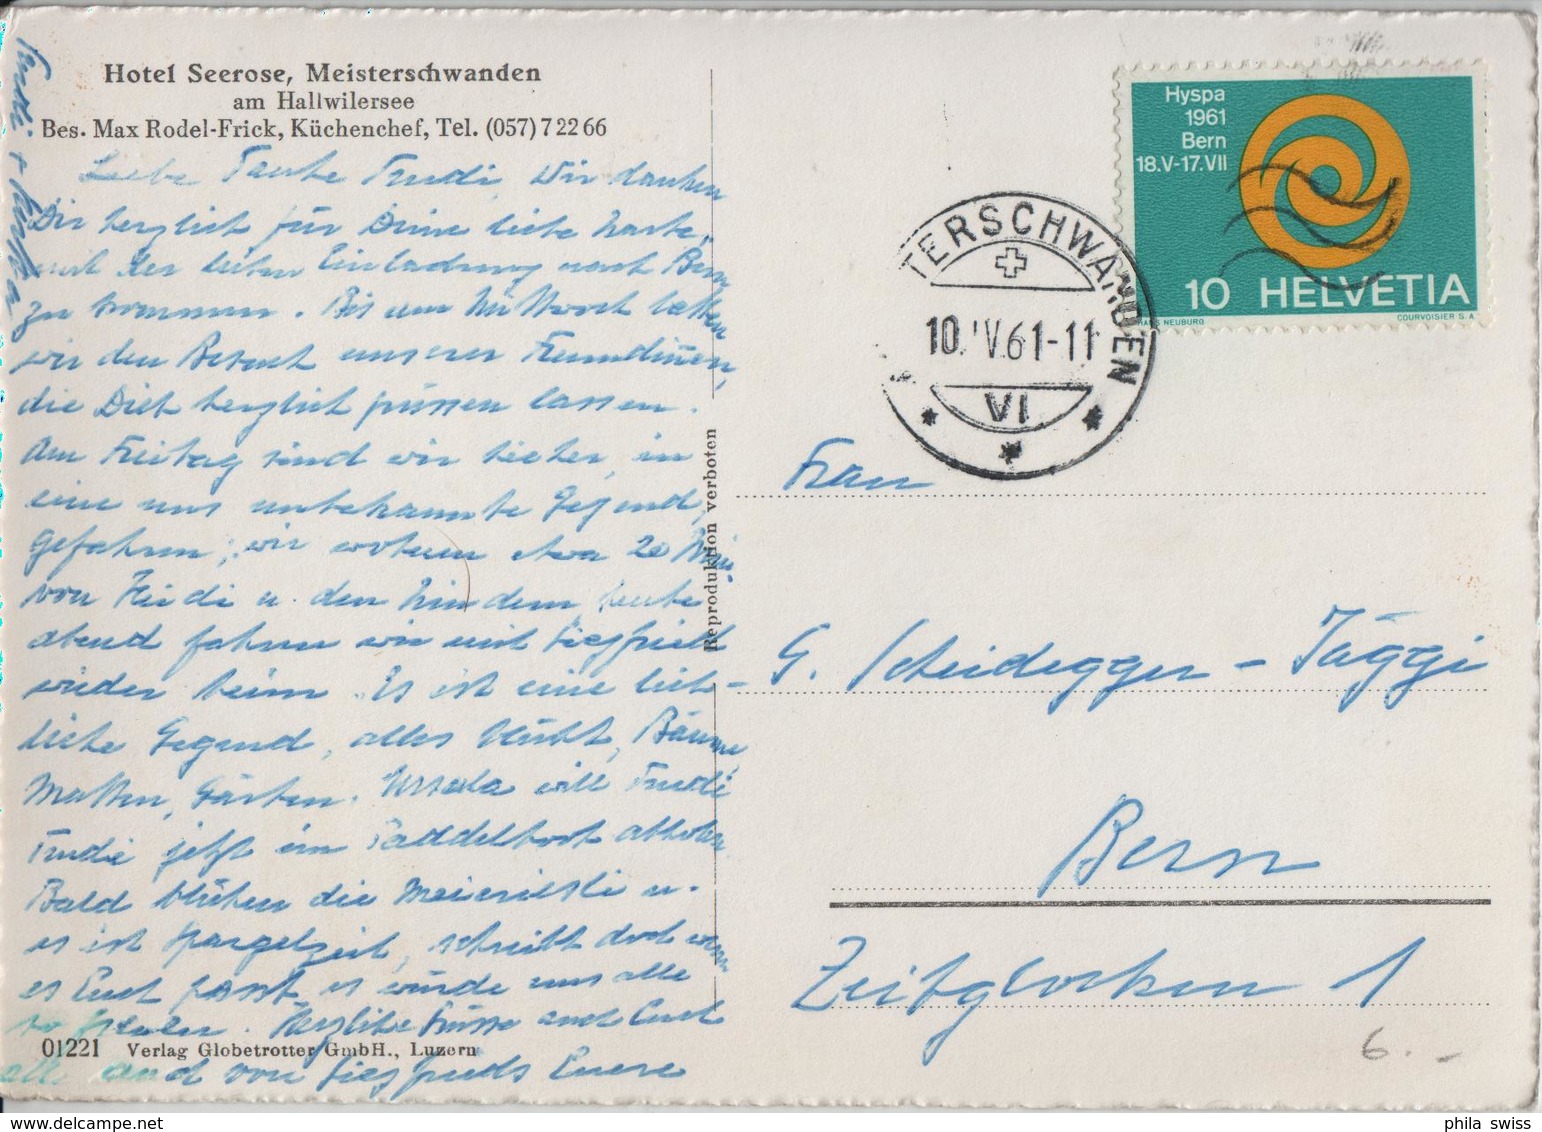 Hotel Seerose, Meisterschwanden
am Hallwilersee
Bes. Max Rodel-Frick, Küchenchef, Tel. (057) 7 22 66
Liebe Tante Trudi, Wir danken
Dir herzlich für Deine liebe Karte,
mit der lieben Einladung nach Bern
zu kommen. Bis am Mittwoch hatten
wir den Besuch unserer Freundinnen,
die Dich herzlich grüssen lassen.
Am Freitag sind wir hieher, in
eine uns unbekannte Gegend,
gefahren, wir wohnen etwa 20 Min.
von Heidi u. den Kindern, heute
abend fahren wir mit Siegfried
wieder heim. Es ist eine lieb-
liche Gegend, alles blüht, Bäume,
Matten, Gärten. Ursula will Trudi
Trudi jetzt im Paddelboot abholen.
Bald blühen die Meieriesli u.
es ist Spargelzeit, schreibt doch wann
es Euch passt, es würde uns alle
so freuen. Herzliche Grüsse auch Euch
alle und von Siegfrieds Euere
Trudi +
01221 Verlag Globetrotter GmbH., Luzern
Reproduktion verboten
Hyspa
1961
Bern
18.V-17.VII
10 HELVETIA
HANS NEUBURG COURVOISIER S.A
TERSCHWANDEN
10. IV. 61-11
VI
Frau
G. Scheidegger-Jäggi
Bern
Zeitglocken 1
6.-
phila swiss